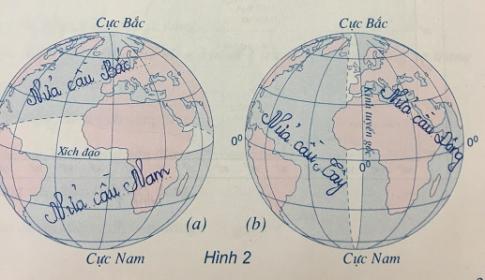 Cực Bắc
Nửa cầu Bắc
Xích đạo
Nửa cầu Nam
(a)
Cực Nam
Cực Bắc
Nửa cầu Đông
Kinh tuyến gốc
Nửa cầu Tây
0⁰
0⁰
0⁰
(b)
Cực Nam
Hình 2